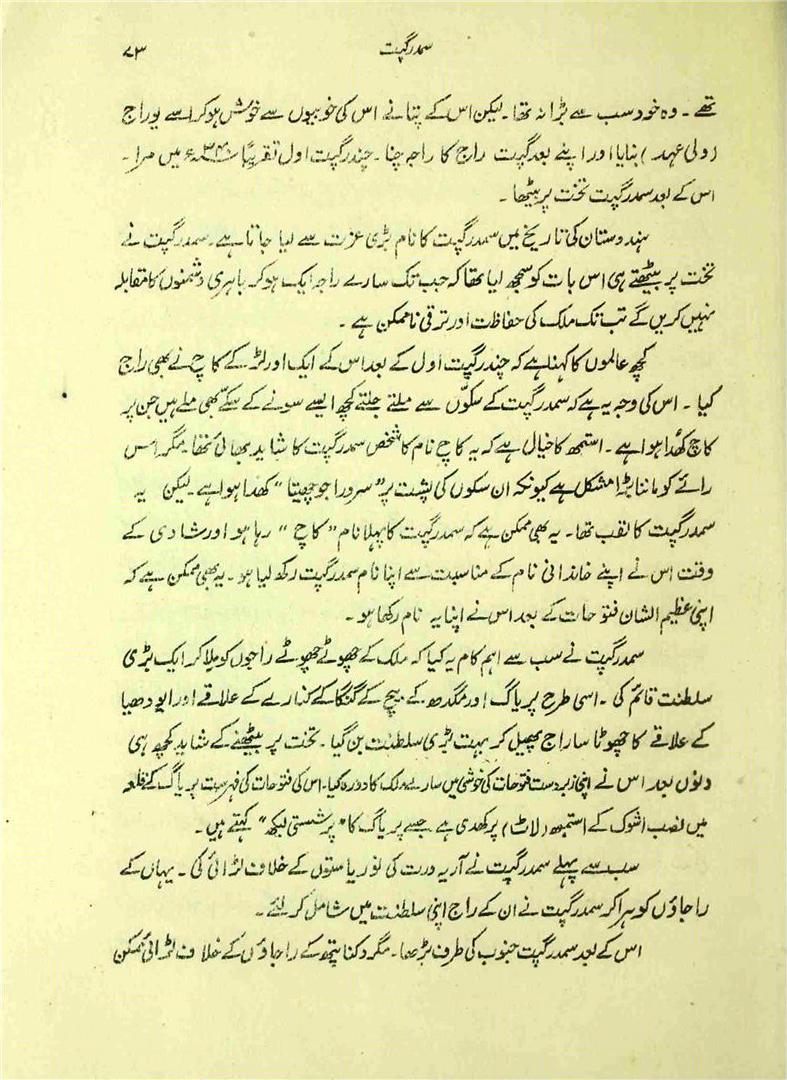 سمدرگپت ۷۳
تھے ۔ وہ خود سب سے بڑا نہ تھا ۔ لیکن اس کے پتا نے اس کی خوبیوں سے خوش ہو کر اسے یوراج
(ولی عہد) بنایا اور اپنے بعد گپت راج کا راجہ چنا ۔ چندرگپت اول تقریباً ۳۴۰ء میں مرا ۔
اس کے بعد سمدرگپت تخت پر بیٹھا ۔
ہندوستان کی تاریخ میں سمدرگپت کا نام بڑی عزت سے لیا جاتا ہے ۔ سمدرگپت نے
تخت پر بیٹھتے ہی اس بات کو سمجھ لیا تھا کہ جب تک سارے راجہ ایک ہو کر باہری دشمنوں کا مقابلہ
نہیں کریں گے تب تک ملک کی حفاظت اور ترقی ناممکن ہے ۔
کچھ عالموں کا کہنا ہے کہ چندرگپت اول کے بعد اس کے ایک اور لڑکے کاچ نے بھی راج
کیا ۔ اس کی وجہ یہ ہے کہ سمدرگپت کے سکّوں سے ملتے جلتے کچھ ایسے سونے کے سکّے بھی ملے ہیں جن پر
کاچ کھُدا ہوا ہے ۔ استمھ کا خیال ہے کہ یہ کاچ نام کا شخص سمدرگپت کا شاید بھائی تھا ۔ مگر اس
رائے کو ماننا بڑا مشکل ہے کیونکہ ان سکوں کی پشت پر ”سروراجوچھیتا“ کھدا ہوا ہے ۔ لیکن یہ
سمدرگپت کا لقب تھا ۔ یہ بھی ممکن ہے کہ سمدرگپت کا پہلا نام ”کاچ“ رہا ہو اور شادی کے
وقت اس نے اپنے خاندانی نام کے مناسبت سے اپنا نام سمدرگپت رکھ لیا ہو ۔ یہ بھی ممکن ہے کہ
اپنی عظیم الشان فتوحات کے بعد اس نے اپنا یہ نام رکھا ہو ۔
سمدرگپت نے سب سے اہم کام یہ کیا کہ ملک کے چھوٹے چھوٹے راجوں کو ملا کر ایک بڑی
سلطنت قائم کی ۔ اسی طرح پریاگ اور مگدھ کے بیچ کے گنگا کے کنارے کے علاقے اور ایودھیا
کے علاقے کا چھوٹا سا راج پھیل کر بہت بڑی سلطنت بن گیا ۔ تخت پر بیٹھنے کے شاید کچھ ہی
دنوں بعد اس نے اپنی زبردست فتوحات کی خوشی میں سارے ملک کا دورہ کیا ۔ اس کی فتوحات کی فہرست پریاگ کے قلعہ
میں نصب اشوک کے استمبھ (لاٹ) پر کھدی ہے جسے پریاگ کا ”پرشستی لیکھ“ کہتے ہیں ۔
سب سے پہلے سمدرگپت نے آریہ ورت کی نو ریاستوں کے خلاف لڑائی کی ۔ یہاں کے
راجاؤں کو ہرا کر سمدرگپت نے ان کے راج اپنی سلطنت میں شامل کر لئے ۔
اس کے بعد سمدرگپت جنوب کی طرف بڑھا ۔ مگر دکنا پتھ کے راجاؤں کے خلاف لڑائی ممکن